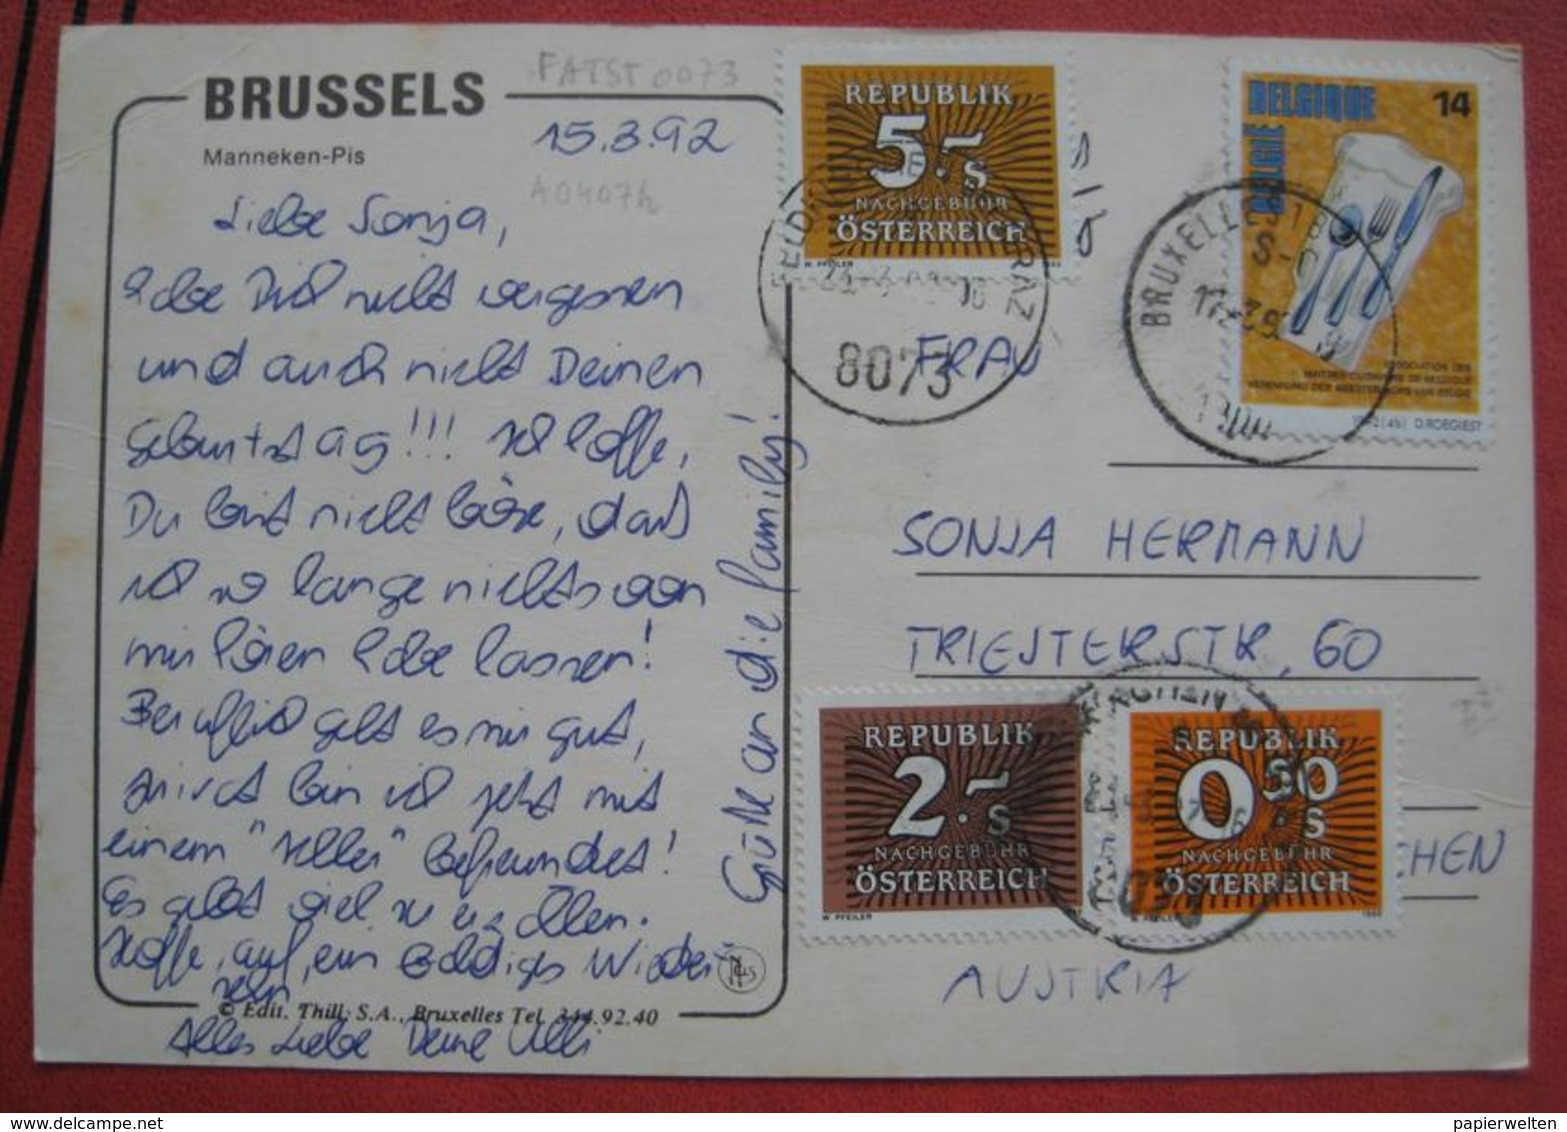 BRUSSELS
Manneken-Pis
FATST0073
15.3.92
A0407h
Liebe Sonja,
habe Dich nicht vergessen
und auch nicht Deinen
Geburtstag!!! Ich hoffe,
Du bist nicht böse, daß
ich so lange nichts von
mir hören habe lassen!
Beruflich geht es mir gut,
privat bin ich jetzt mit
einem "Seller" befreundet!
Es gibt viel zu erzählen.
Hoffe, auf ein baldiges Wieder-
sehen
Alles Liebe Deine Ulli
Grüße an die Family!
© Edit. Thill, S.A., Bruxelles Tel. 344.92.40
REPUBLIK
5.- S
NACHGEBÜHR
ÖSTERREICH
W. PFEILER
8073
BELGIQUE 14
BELGIË
VERENIGING DER MEESTERKOKS VAN BELGIE
1992(4b) D.ROEGIEST
BRUXELLES
FRAU
SONJA HERMANN
TRIESTERSTR. 60
REPUBLIK
2.- S
NACHGEBÜHR
ÖSTERREICH
W. PFEILER
REPUBLIK
0.50 S
NACHGEBÜHR
ÖSTERREICH
CHEN
AUSTRIA
papierwelten